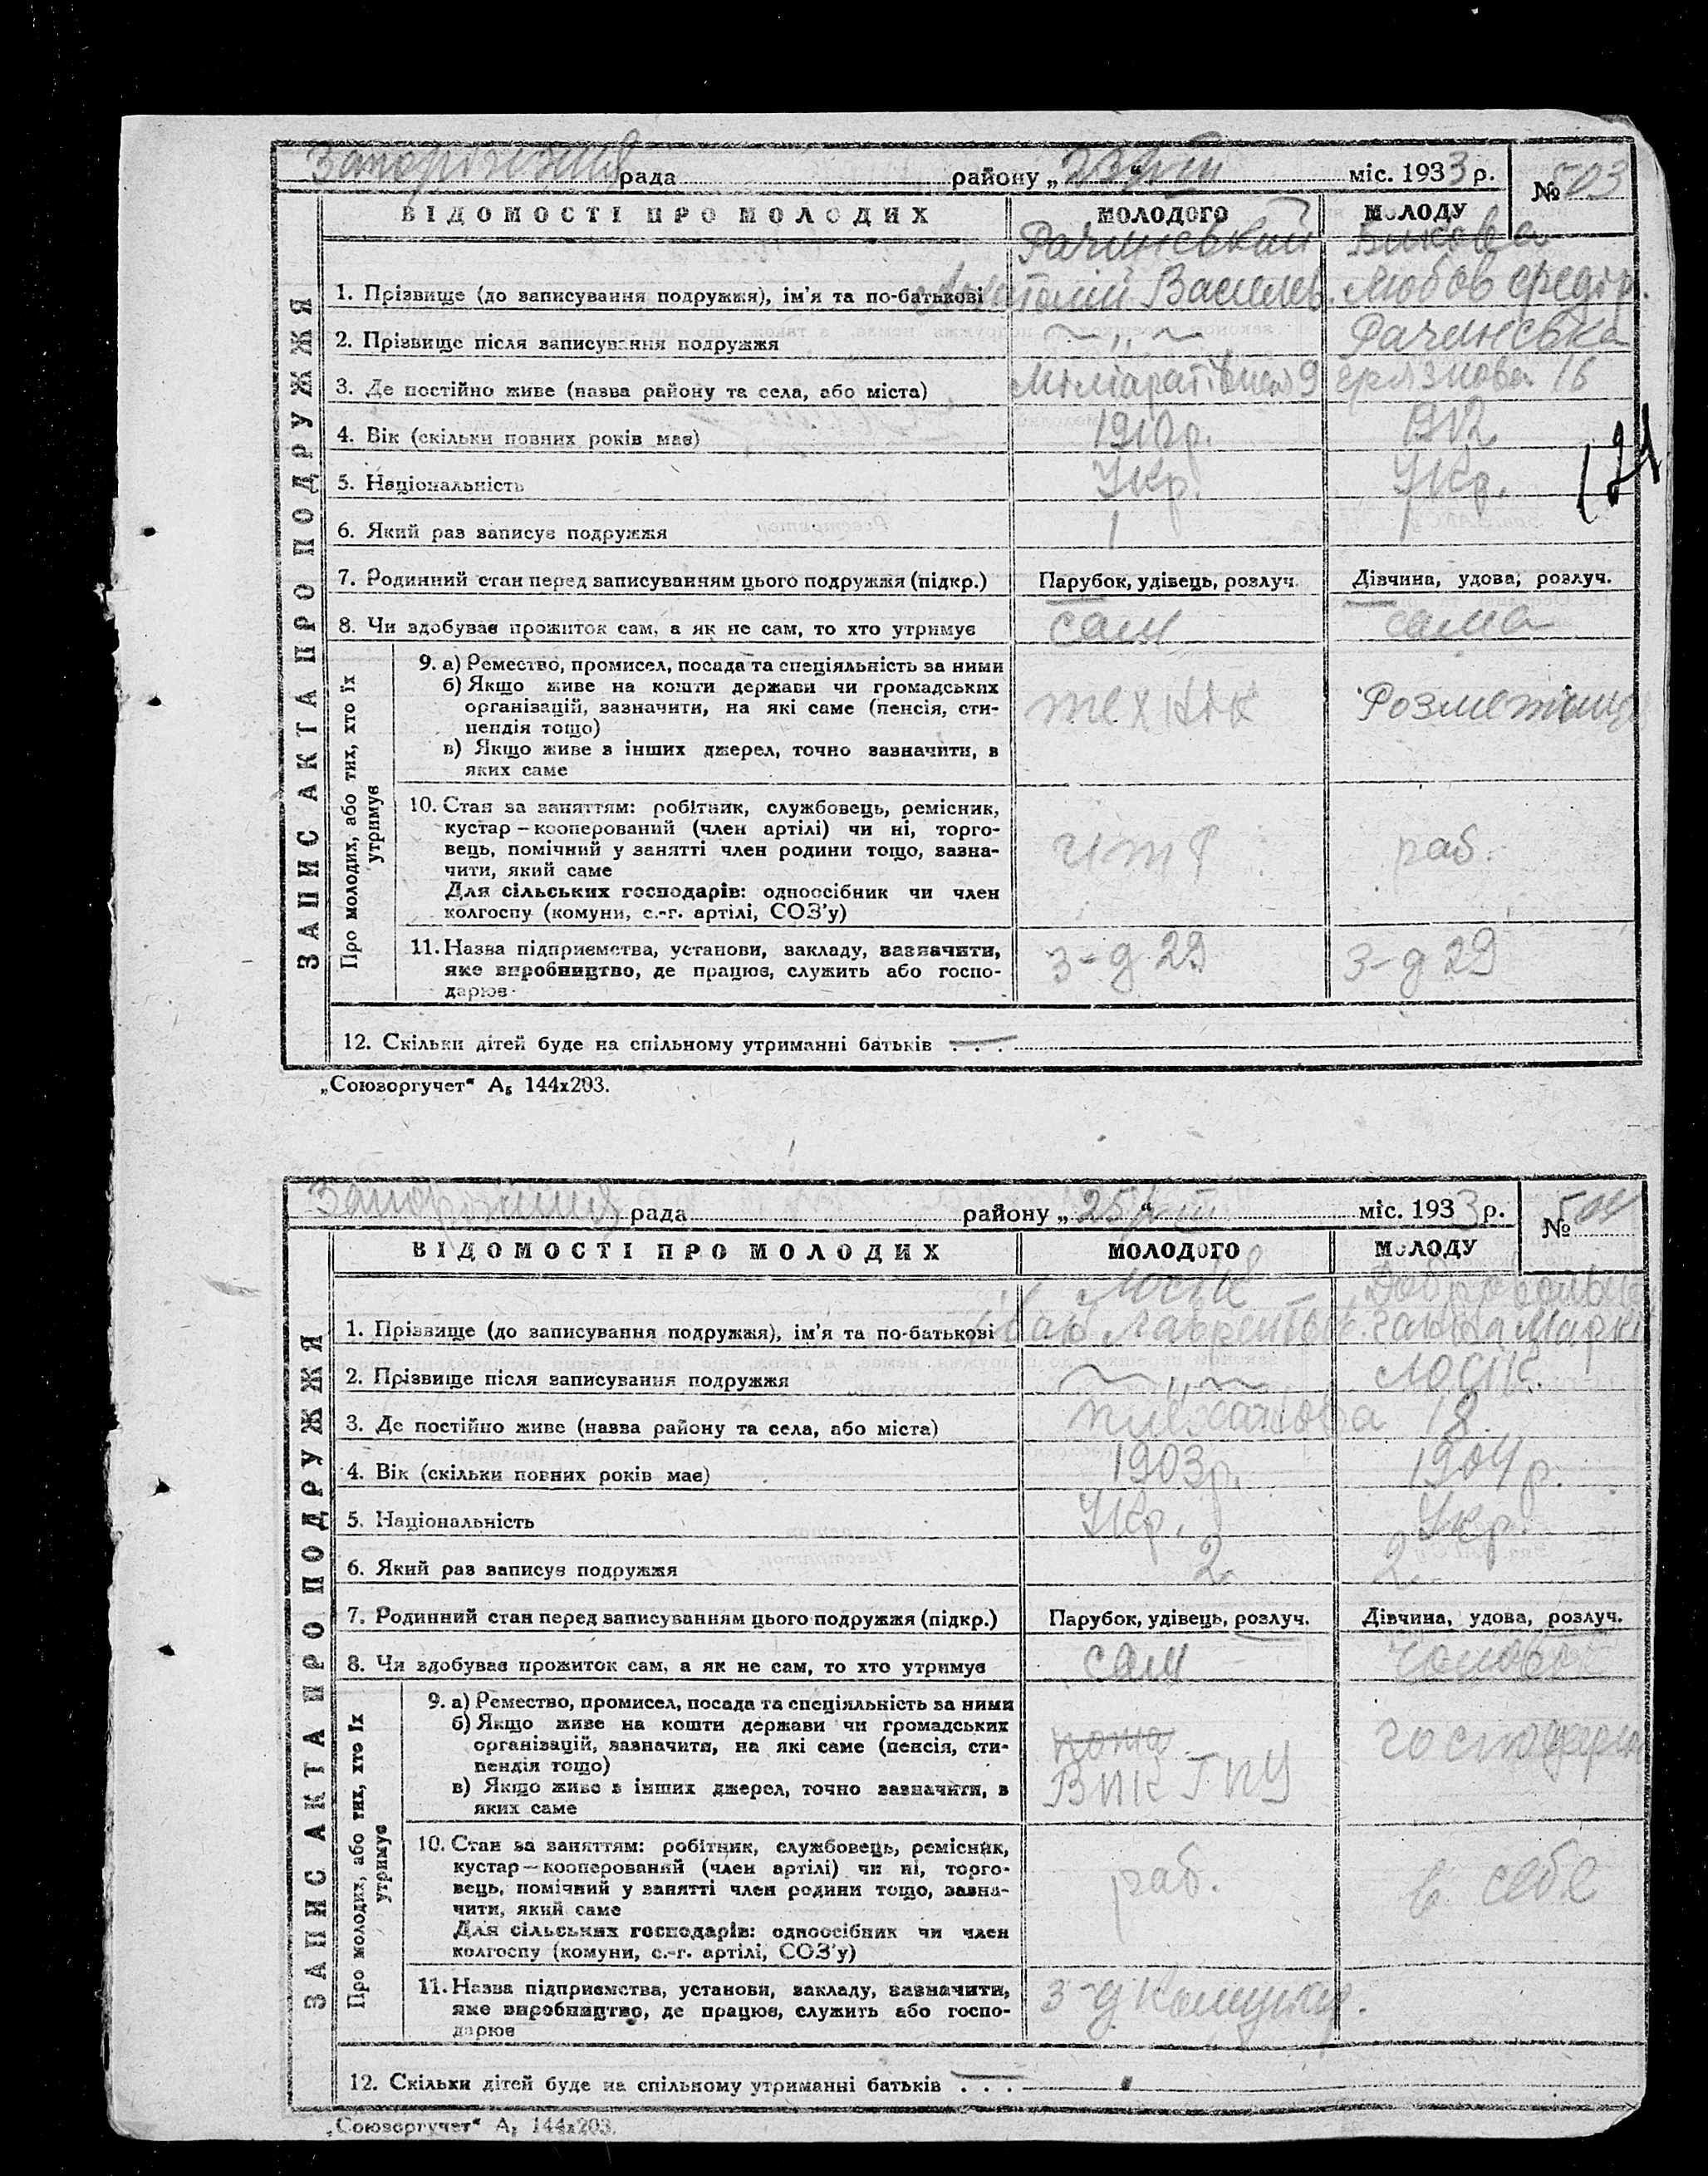 рада району „23/VIII“ міс. 1933 р. № 503
ЗАПИС АКТА ПРО ПОДРУЖЖЯ
ВІДОМОСТІ ПРО МОЛОДИХ МОЛОДОГО МОЛОДУ
Рачинський Бикова
1. Прізвище (до записування подружжя), ім'я та по-батькові Анатолій Василев. Любов Федір.
2. Прізвище після записування подружжя ~ „ ~ Рачинська
3. Де постійно живе (назва району та села, або міста) 9 16
4. Вік (скільки повних років має) 1910р. 1912
121
5. Національність Укр. Укр.
6. Який раз записує подружжя 1 1
7. Родинний стан перед записуванням цього подружжя (підкр.) Парубок, удівець, розлуч. Дівчина, удова, розлуч.
8. Чи здобуває прожиток сам, а як не сам, то хто утримує сам сама
Про молодих, або тих, хто їх утримує
9. а) Ремество, промисел, посада та спеціяльність за ними
б) Якщо живе на кошти держави чи громадських
організацій, зазначити, на які саме (пенсія, сти-
пендія тощо)
технік
в) Якщо живе з інших джерел, точно зазначити, з
яких саме
10. Стан за заняттям: робітник, службовець, ремісник,
кустар – кооперований (член артілі) чи ні, торго-
вець, помічний у занятті член родини тощо, зазна-
чити, який саме
итр раб.
Для сільських господарів: одноосібник чи член
колгоспу (комуни, с.-г. артілі, СОЗ'у)
11. Назва підприємства, установи, закладу, зазначити,
яке виробництво, де працює, служить або госпо-
дарює
з-д 29 з-д 29
12. Скільки дітей буде на спільному утриманні батьків . . . —
„Союзоргучет“ А5 144х203.
рада району „25/VIII“ міс. 1933 р. № 504
ЗАПИС АКТА ПРО ПОДРУЖЖЯ
ВІДОМОСТІ ПРО МОЛОДИХ МОЛОДОГО МОЛОДУ
Лосік
1. Прізвище (до записування подружжя), ім'я та по-батькові Іван
2. Прізвище після записування подружжя ~ „ ~ Лосік.
3. Де постійно живе (назва району та села, або міста) Плеханова 18
4. Вік (скільки повних років має) 1903р. 1904р.
5. Національність Укр. Укр.
6. Який раз записує подружжя 2. 2.
7. Родинний стан перед записуванням цього подружжя (підкр.) Парубок, удівець, розлуч. Дівчина, удова, розлуч.
8. Чи здобуває прожиток сам, а як не сам, то хто утримує сам чоловік
Про молодих, або тих, хто їх утримує
9. а) Ремество, промисел, посада та спеціяльність за ними
б) Якщо живе на кошти держави чи громадських
організацій, зазначити, на які саме (пенсія, сти-
пендія тощо)
в) Якщо живе з інших джерел, точно зазначити, з
яких саме
10. Стан за заняттям: робітник, службовець, ремісник,
кустар — кооперований (член артілі) чи ні, торго-
вець, помічний у занятті член родини тощо, зазна-
чити, який саме
раб. в себе
Для сільських господарів: одноосібник чи член
колгоспу (комуни, с.-г. артілі, СОЗ'у)
11. Назва підприємства, установи, закладу, зазначити,
яке виробництво, де працює, служить або госпо-
дарює
з-д Комунар.
12. Скільки дітей буде на спільному утриманні батьків . . . —
„Союзоргучет“ А5 144х203.